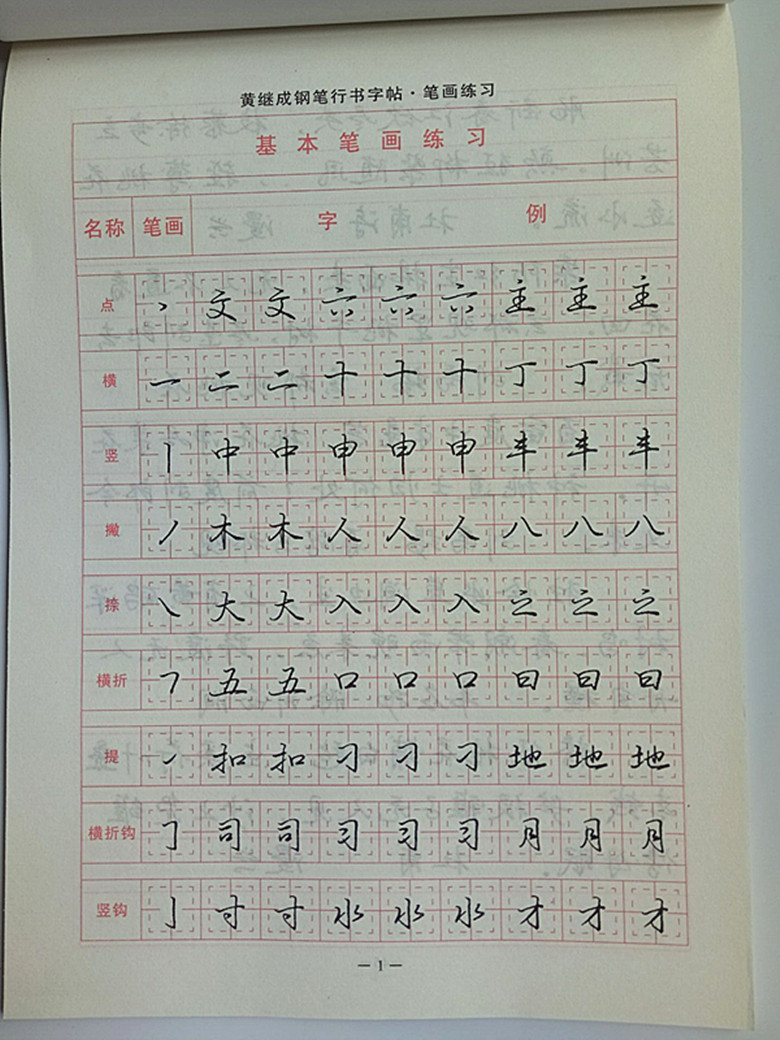 黄继成钢笔行书字帖·笔画练习
基本笔画练习
名称 笔画 字例
点 丶 文 文 六 六 六 主 主 主
横 一 二 二 十 十 十 丁 丁 丁
竖 丨 中 中 申 申 申 丰 丰 丰
撇 丿 木 木 人 人 人 八 八 八
捺 ㇏ 大 大 入 入 入 之 之 之
横折 𠃍 五 五 口 口 口 曰 曰 曰
提 ㇀ 扣 扣 刁 刁 刁 地 地 地
横折钩 𠃌 司 司 习 习 习 月 月 月
竖钩 亅 寸 寸 水 水 水 才 才 才
—1—